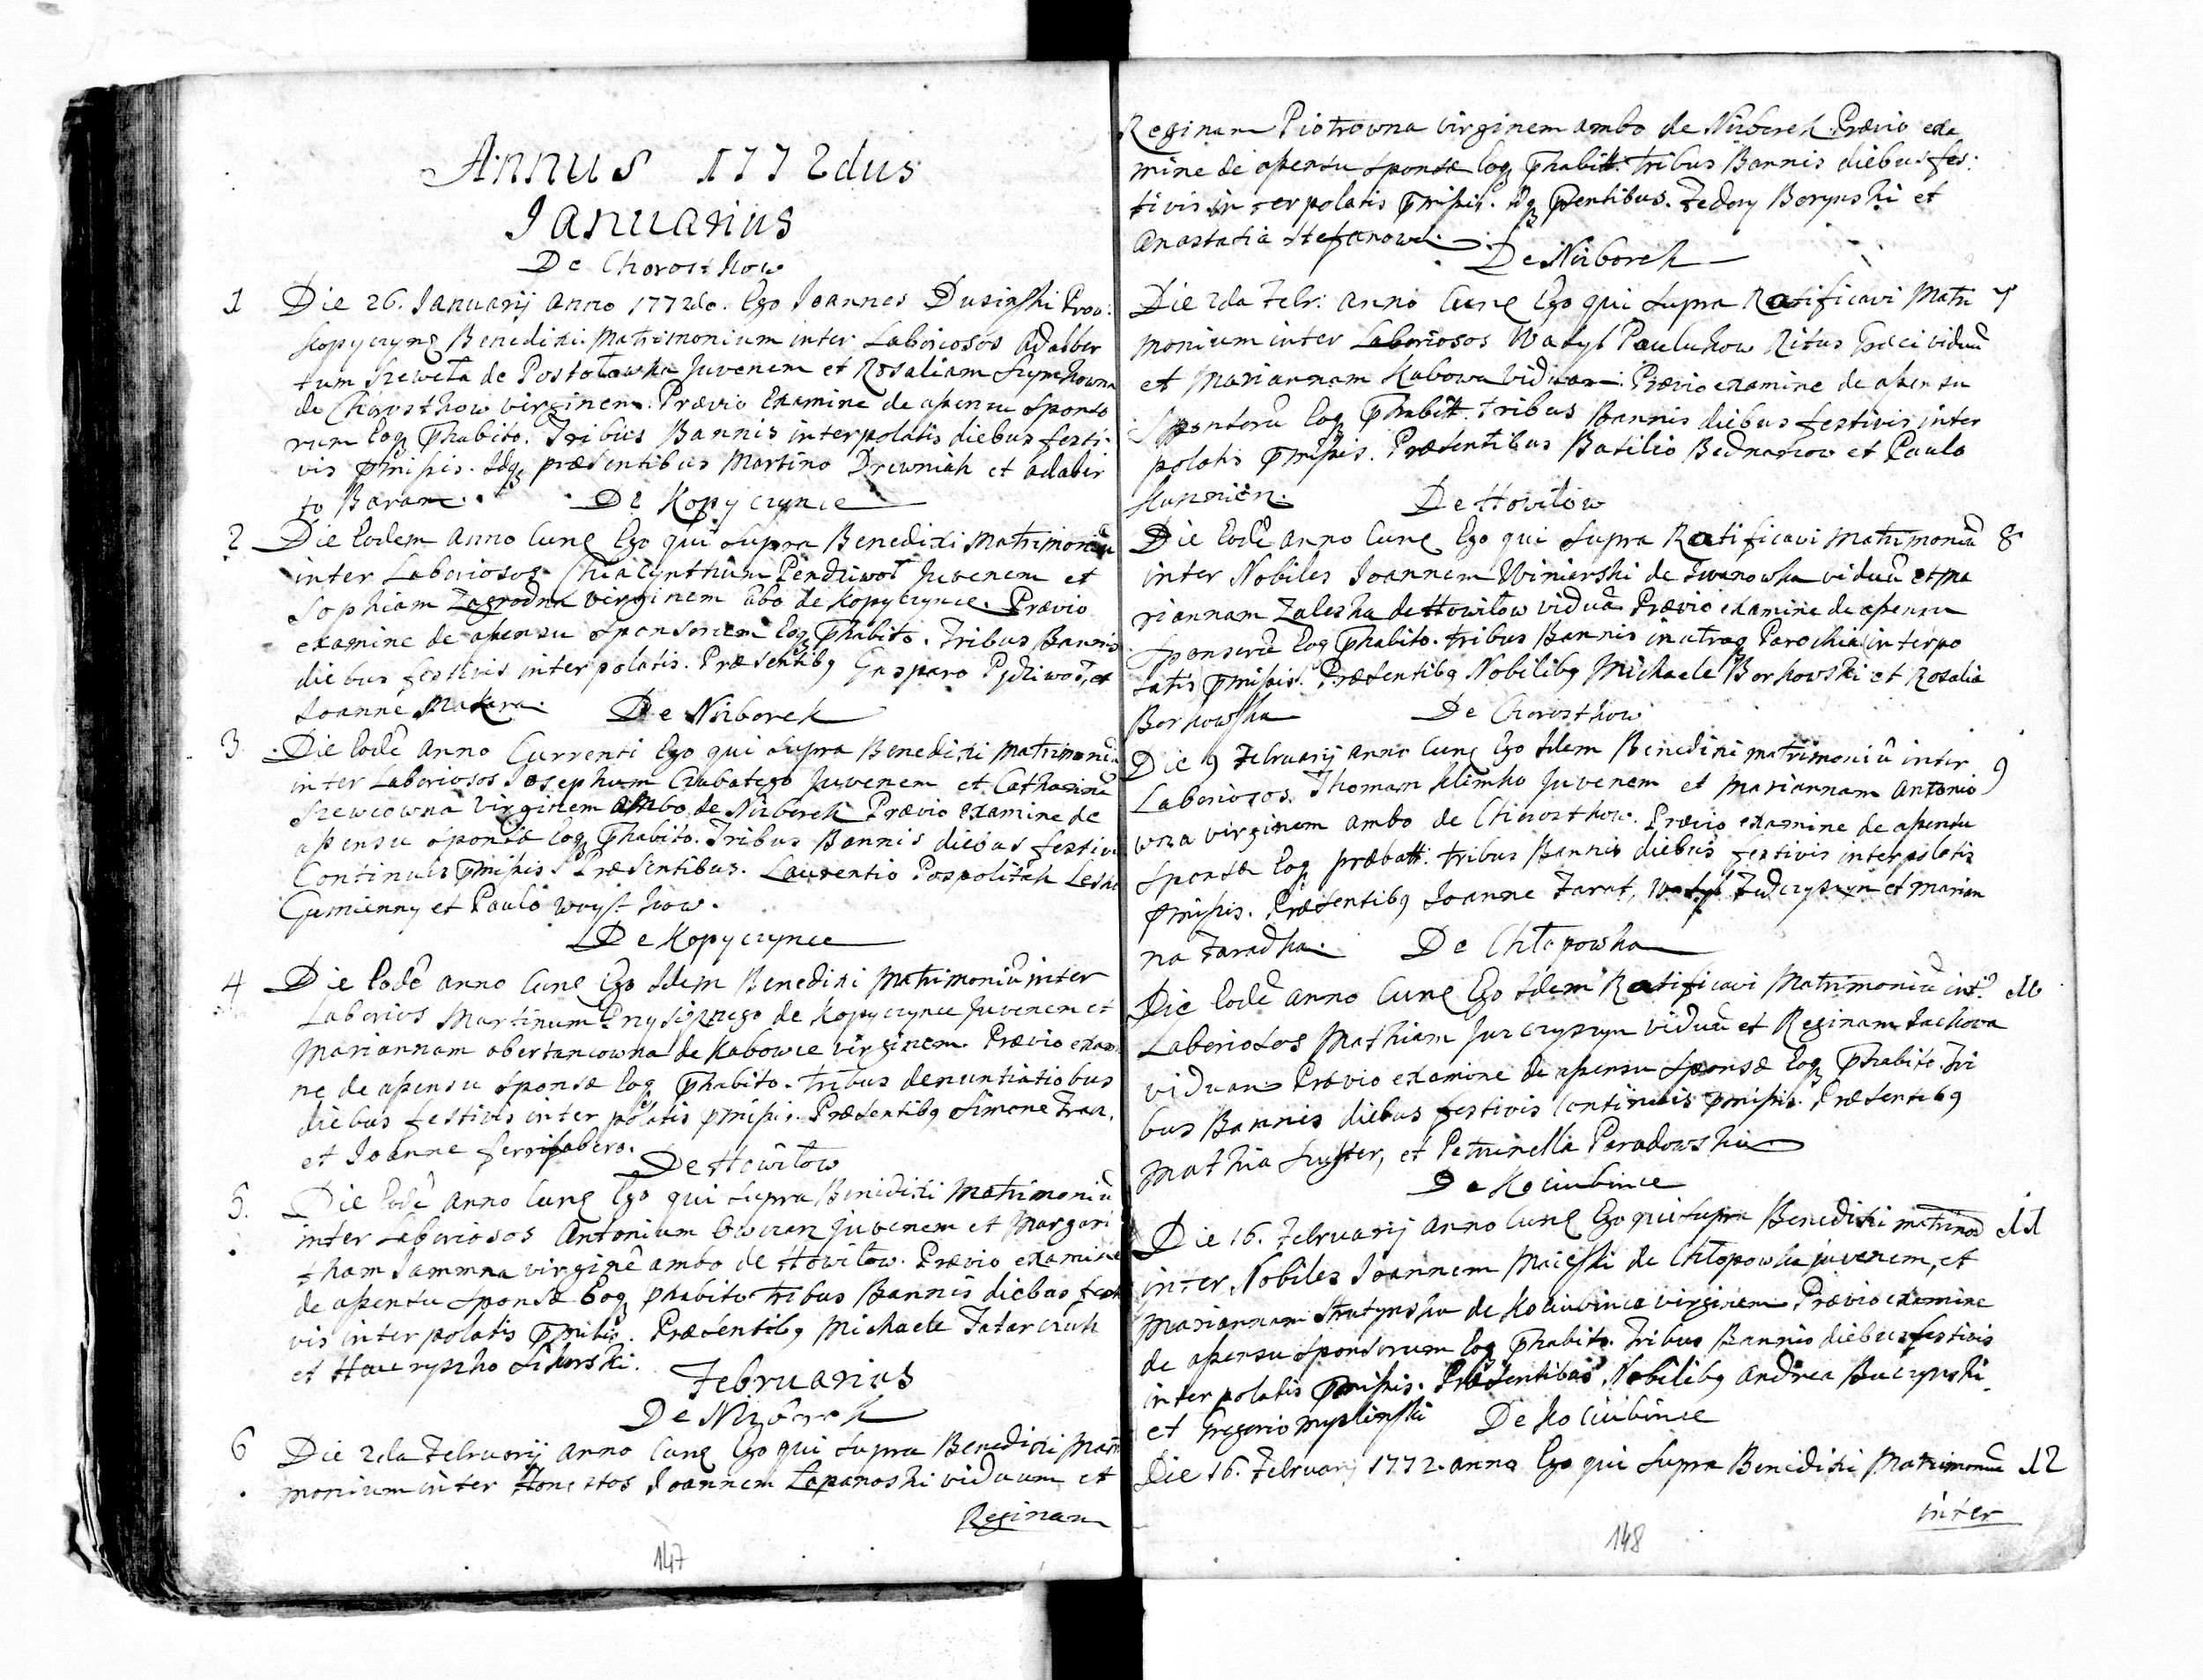 Annus 1772dus
Januarius
De Chorostkow
1 Die 26. Januarij Anno 1772do. Ego Joannes Dusinski Prov:
Kopyczync Benedixi Matrimonium inter Laboriosos Adalber
tum Szeweta de Postołowka Juvenem et Rosaliam Szymkowna
de Chorostkow virginem. Prævio Examine de assensu Sponso
rum Eoq; Phabito. Tribus Bannis interpolatis diebus festi
vis pmissis. Idq; præsentibus Martino Drewniak et Adalber
to Baran. De Kopyczynce
2 Die Eodem Anno Curre Ego qui supra Benedixi Matrimoniũ
inter Laboriosos Chiacynthum Pendziwoł Juvenem et
Sophiam Zagrodna virginem ãbo de Kopyczynce. Prævio
examine de assensu Sponsorum Eoq; Phabito. Tribus Bannis
diebus festivis interpolatis. Præsentibq Gasparo Pędziwoł, et
Joanne Makara. De Nizborek
3 Die Eodẽ Anno Currenti Ego qui supra Benedixi Matrimoniũ
inter Laboriosos Josephum Czubatego Juvenem et Catharinã
Szewcowna Virginem Ambo de Nizborek Prævio Examine de
assensu Sponsæ Eoq; Phabito. Tribus Bannis diebus festivis
Continuis pmissis Præsentibus. Laurentio Pospolitak Lesko
Gumienny et Paulo
De Kopyczynce
4 Die Eodẽ Anno Curre Ego Idem Benedixi Matrimoniũ inter
Laborios Martinum de Kopyczynce Juvenem et
Mariannam obertancowna de Kabowce virginem. Prævio exami
ne de assensu Sponsæ Eoq; Phabito. Tribus denuntiatiobus
diebus festivis interpolatis pmissis. Præsentibq Simone
et Joanne ferrifabero.
De Howiłow
5. Die Eodẽ Anno Curre Ego qui supra Benedixi Matrimoniũ
inter Laboriosos Antonium Owczarz Juvenem et Margari
tham virginẽ ambo de Howiłow. Prævio examine
de assensu Sponsæ Eoq; phabito Tribus Bannis diebus festi
vis interpolatis pmissis. Præsentibq Michaele Tatarczuk
et Hawryszko Sikorski.
Februarius
De Nizborek
6 Die 2da Februarij Anno Curre Ego qui supra Benedixi Matri
monium inter Honestos Joannem Łopanoski viduum et
Reginam
147
Reginam Piotrowna virginem ambo de Nizborek Prævio exa
mine de assensu Sponsæ Eoq; Phabitt. Tribus Bannis diebus fes:
tivis interpolatis pmissis. Idq; Psentibus. Fedory Berynski et
Anastasia Stefanowa.
De Nizborek
Die 2da Febr: Anno Curre Ego qui supra Ratificavi Matri 7
monium inter Laboriosos Wasyl Paulukow Ritus Græci viduũ
et Mariannam Kabowa viduam. Prævio examine de assensu
Sponsorũ Eoq; Phabitt. Tribus Bannis diebus festivis inter
polatis pmissis. Præsentibus Basilio Bednarzow et Paulo
De Howiłow
Die Eodẽ Anno Curre Ego qui supra Ratificavi Matrimoniũ 8
inter Nobiles Joannem Winiarski de Iwanowka viduũ et Ma
riannam Zaleska de Howiłow viduã Prævio examine de assensu
Sponsorũ Eoq; Phabito. Tribus Bannis in utraq; Parochia interpo
latis pmissis. Præsentibq Nobilibq Michaele Borkowski et Rosalia
Borkowska De Chorostkow
Die 9 Februarij Anno Curre Ego Idem Benedixi matrimoniũ inter 9
Laboriosos. Thomam Klimko Juvenem et Mariannam Antonio
wna virginem ambo de Chorostkow. Prævio examine de assensu
Sponsæ Eoq; præhatt. Tribus Bannis diebus festivis interpolatis
pmissis. Præsentibq Joanne Farat, Wasyl et Marian
na Faradka. De Chłopowka
Die Eodẽ Anno Curre Ego Idem Ratificavi Matrimoniũ int. 10
Laboriosos Mathiam Jurczyszyn viduũ et Reginam Jackowa
viduam Prævio examine de assensu Sponsæ Eoq; Phabito. Tri
bus Bannis diebus festivis continuis pmissis. Præsentibq
Mathia Suster, et Petrinella Paradowska
De Kociubince
Die 16. Februarij Anno Curre Ego qui supra Benedixi matrimoñ 11
inter Nobiles Joannem Maieski de Chłopowka juvenem, et
Mariannam Strutynska de Kociubince virginem Prævio examine
de assensu Sponsorum Eoq; Phabito. Tribus Bannis diebus festivis
interpolatis pmissis. Præsentibus Nobilibq Andrea Buczynski
et Gregorio Myslinski De Kociubince
Die 16. Februarij 1772. anno Ego qui supra Benedixi Matrimoniũ 12
inter
148